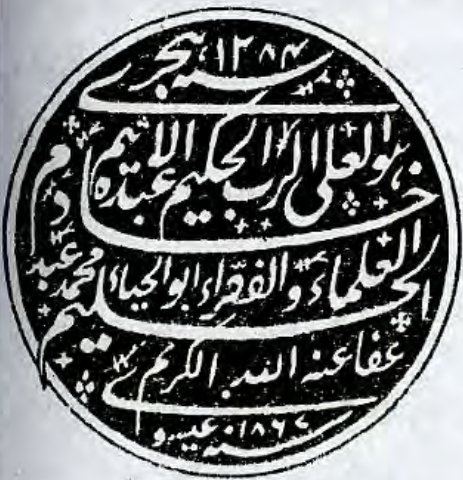 سنه ۱۲۸۴ هجری
هو العلی الرب الحکیم عبده الاثیم
خادم
العلماء والفقراء ابو الحیاء محمد عبد
الحلیم
عفا عنه الله الکریم
سنه ۱۸۶۷ عیسوی